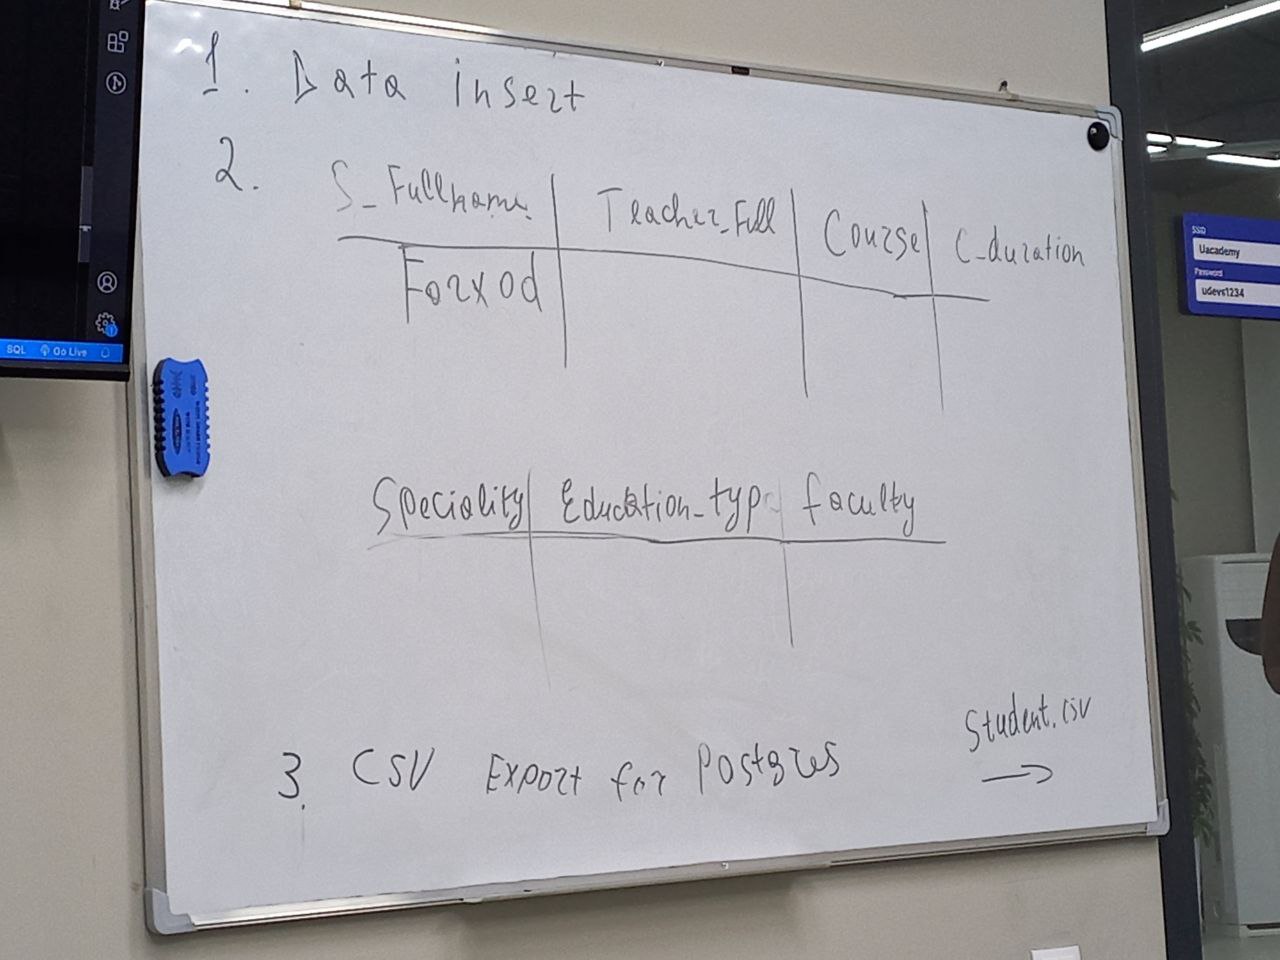 1. Data insert
2.
S_Fullname Teacher_Full Course C_duration
Forxod
Speciality Education_type faculty
3. CSV Export for Postgres
Student.csv
SQL Go Live
SSID
Uacademy
Password
udevs1234